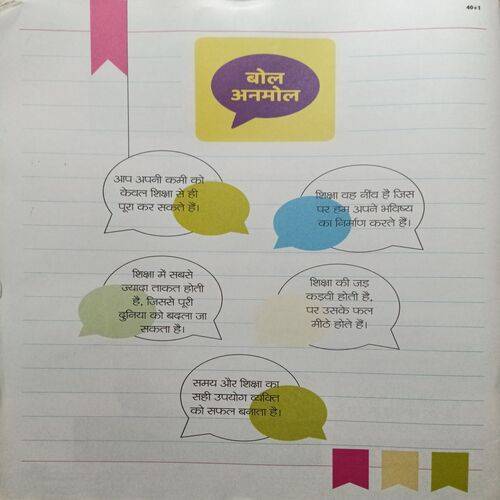 40+1
बोल
अनमोल
आप अपनी कमी को
केवल शिक्षा से ही
पूरा कर सकते हैं।
शिक्षा वह नींव है जिस
पर हम अपने भविष्य
का निर्माण करते हैं।
शिक्षा में सबसे
ज्यादा ताकत होती
है, जिससे पूरी
दुनिया को बदला जा
सकता है।
शिक्षा की जड़
कड़वी होती है,
पर उसके फल
मीठे होते हैं।
समय और शिक्षा का
सही उपयोग व्यक्ति
को सफल बनाता है।